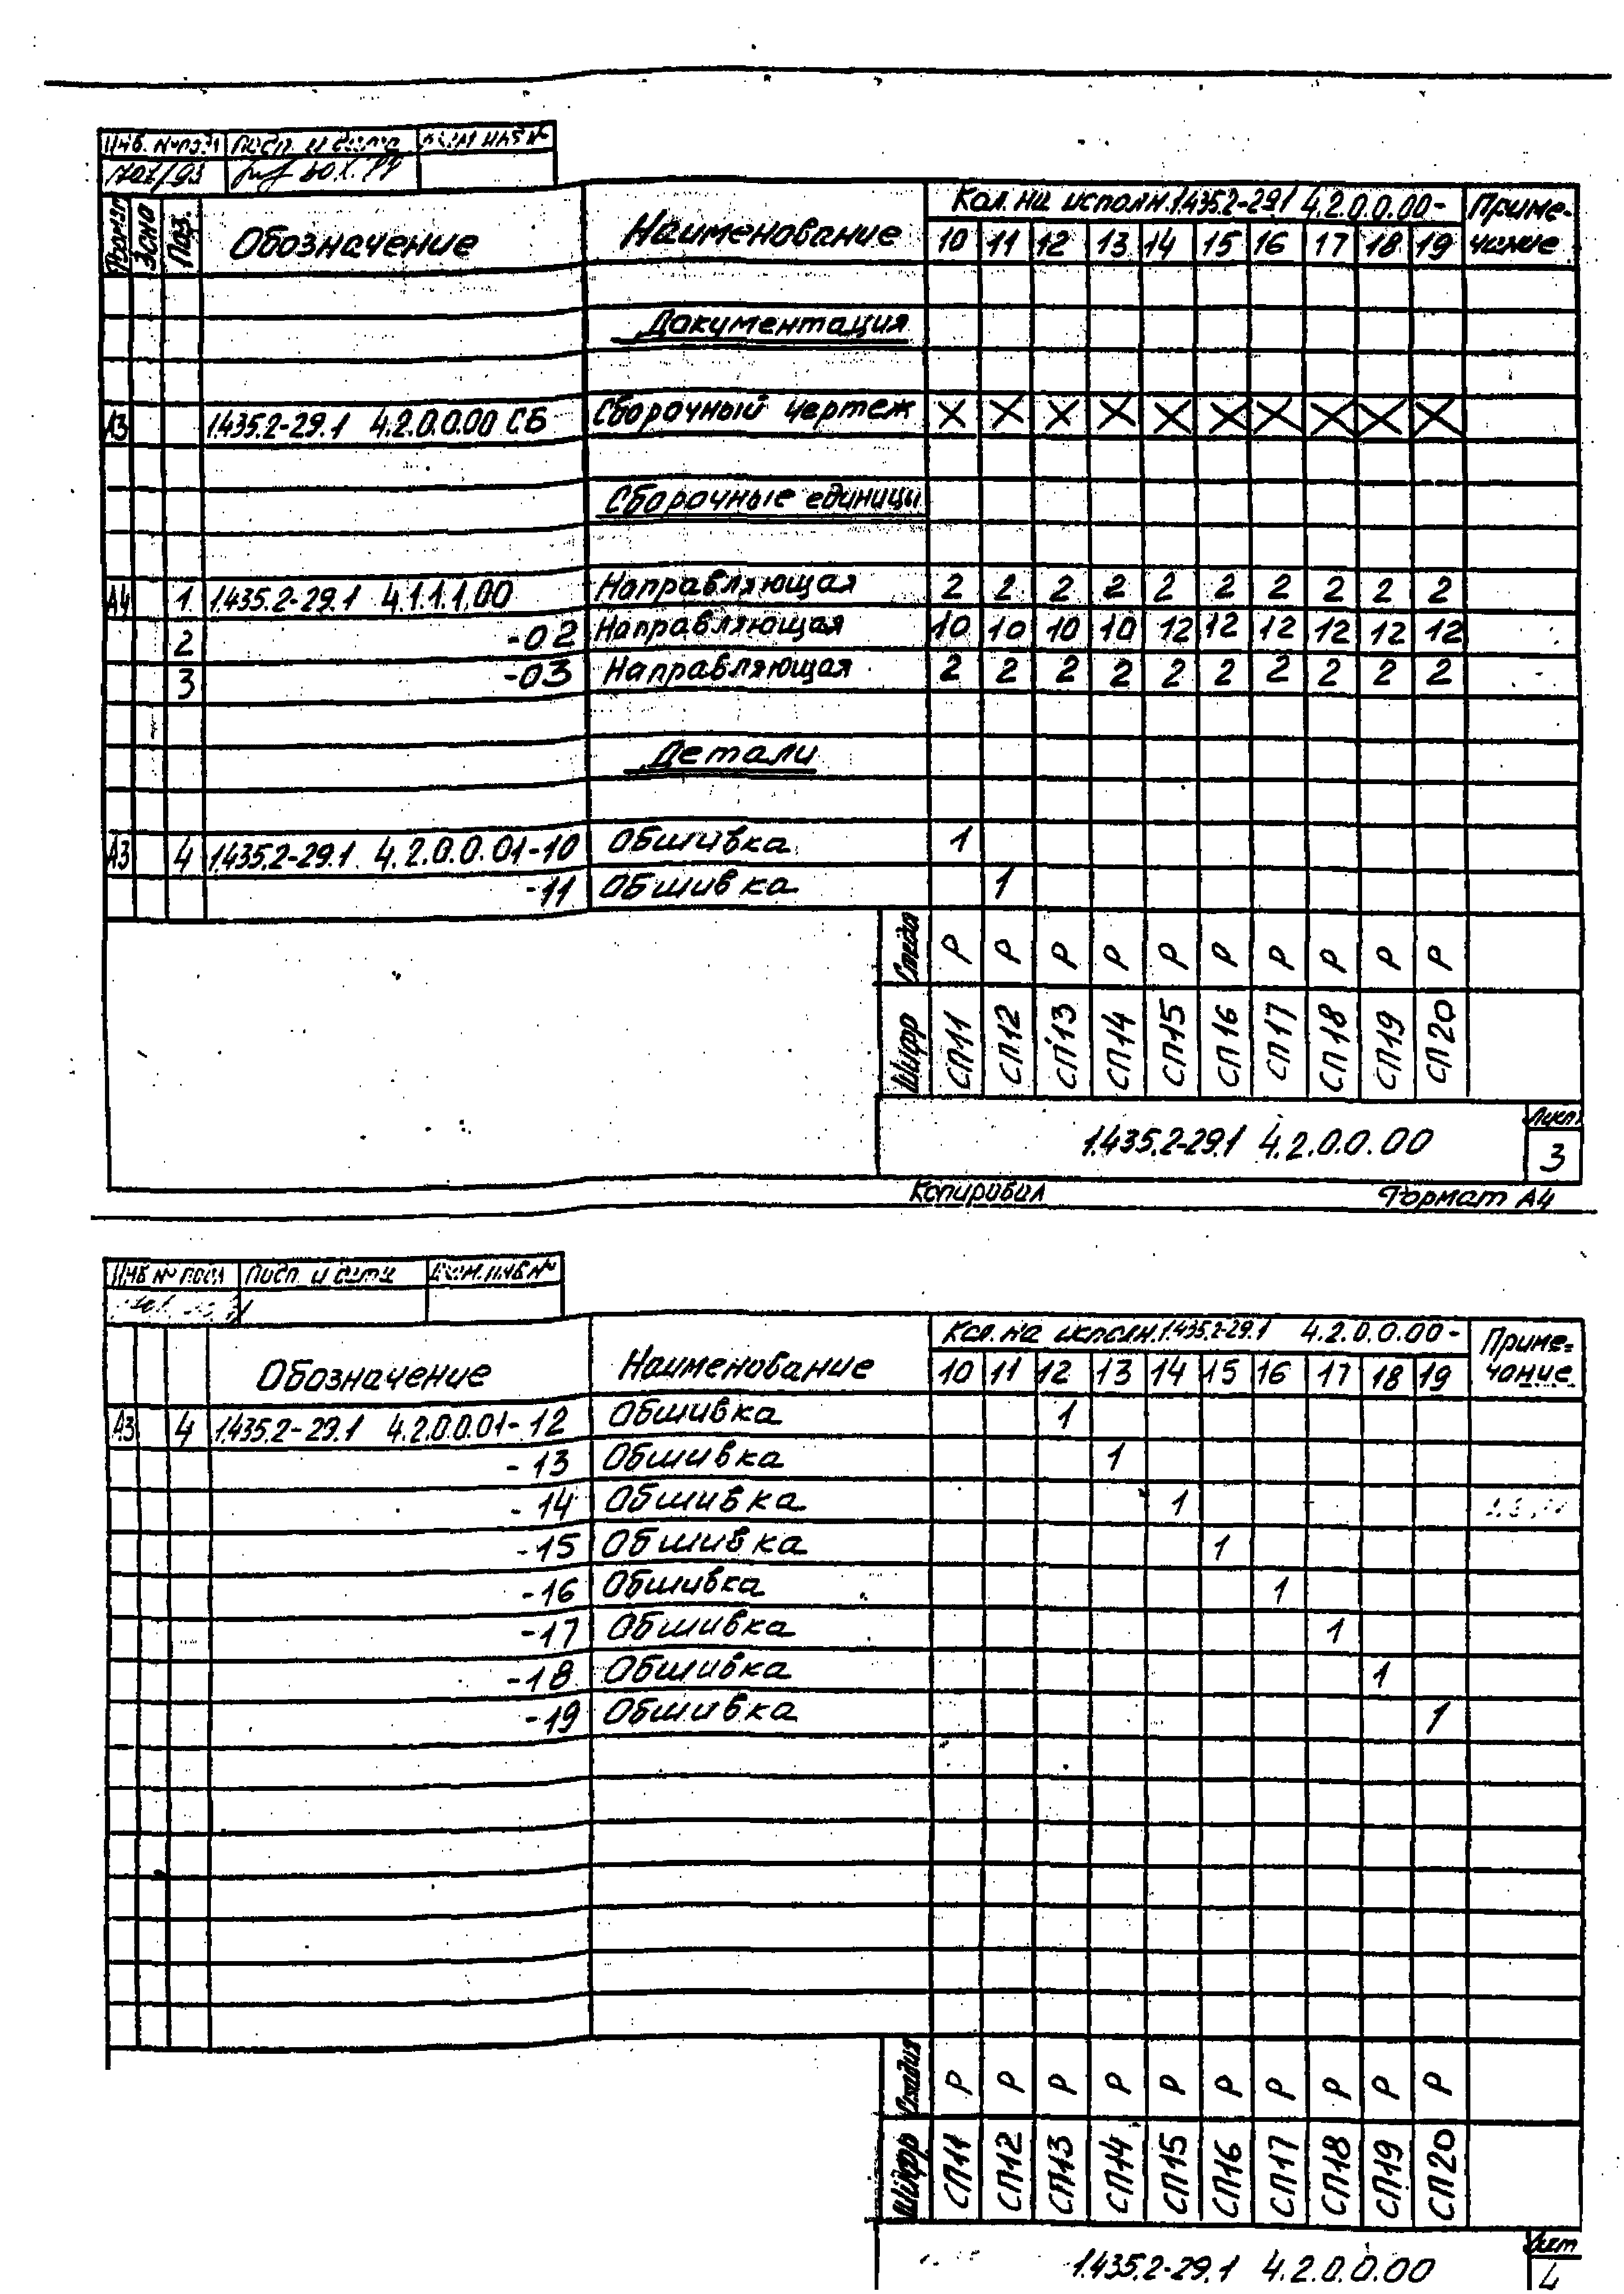 Инв. № подл Подп. и дата Взам инв №
Формат Зона Поз. Обозначение Наименование Кол. на исполн. 1.435.2-29.1 4.2.0.0.00- Приме-
10 11 12 13 14 15 16 17 18 19 чание
Документация
А3 1.435.2-29.1 4.2.0.0.00 СБ Сборочный чертеж X X X X X X X X X X
Сборочные единицы
А4 1 1.435.2-29.1 4.1.1.1.00 Направляющая 2 2 2 2 2 2 2 2 2 2
2 -02 Направляющая 10 10 10 10 12 12 12 12 12 12
3 -03 Направляющая 2 2 2 2 2 2 2 2 2 2
Детали
А3 4 1.435.2-29.1 4.2.0.0.01-10 Обшивка 1
-11 Обшивка 1
Стадия Р Р Р Р Р Р Р Р Р Р
Шифр СП11 СП12 СП13 СП14 СП15 СП16 СП17 СП18 СП19 СП20
1.435.2-29.1 4.2.0.0.00 Лист
3
Копировал Формат А4
Инв № подл Подп. и дата Взам. инв №
Обозначение Наименование Кол. на исполн. 1.435.2-29.1 4.2.0.0.00- Приме-
10 11 12 13 14 15 16 17 18 19 чание
А3 4 1.435.2-29.1 4.2.0.0.01-12 Обшивка 1
-13 Обшивка 1
-14 Обшивка 1
-15 Обшивка 1
-16 Обшивка 1
-17 Обшивка 1
-18 Обшивка 1
-19 Обшивка 1
Стадия Р Р Р Р Р Р Р Р Р Р
Шифр СП11 СП12 СП13 СП14 СП15 СП16 СП17 СП18 СП19 СП20
1.435.2-29.1 4.2.0.0.00 Лист
4